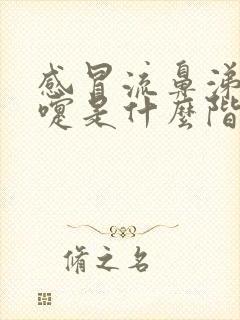 感冒流鼻涕
嚏是什麼階
脩之名